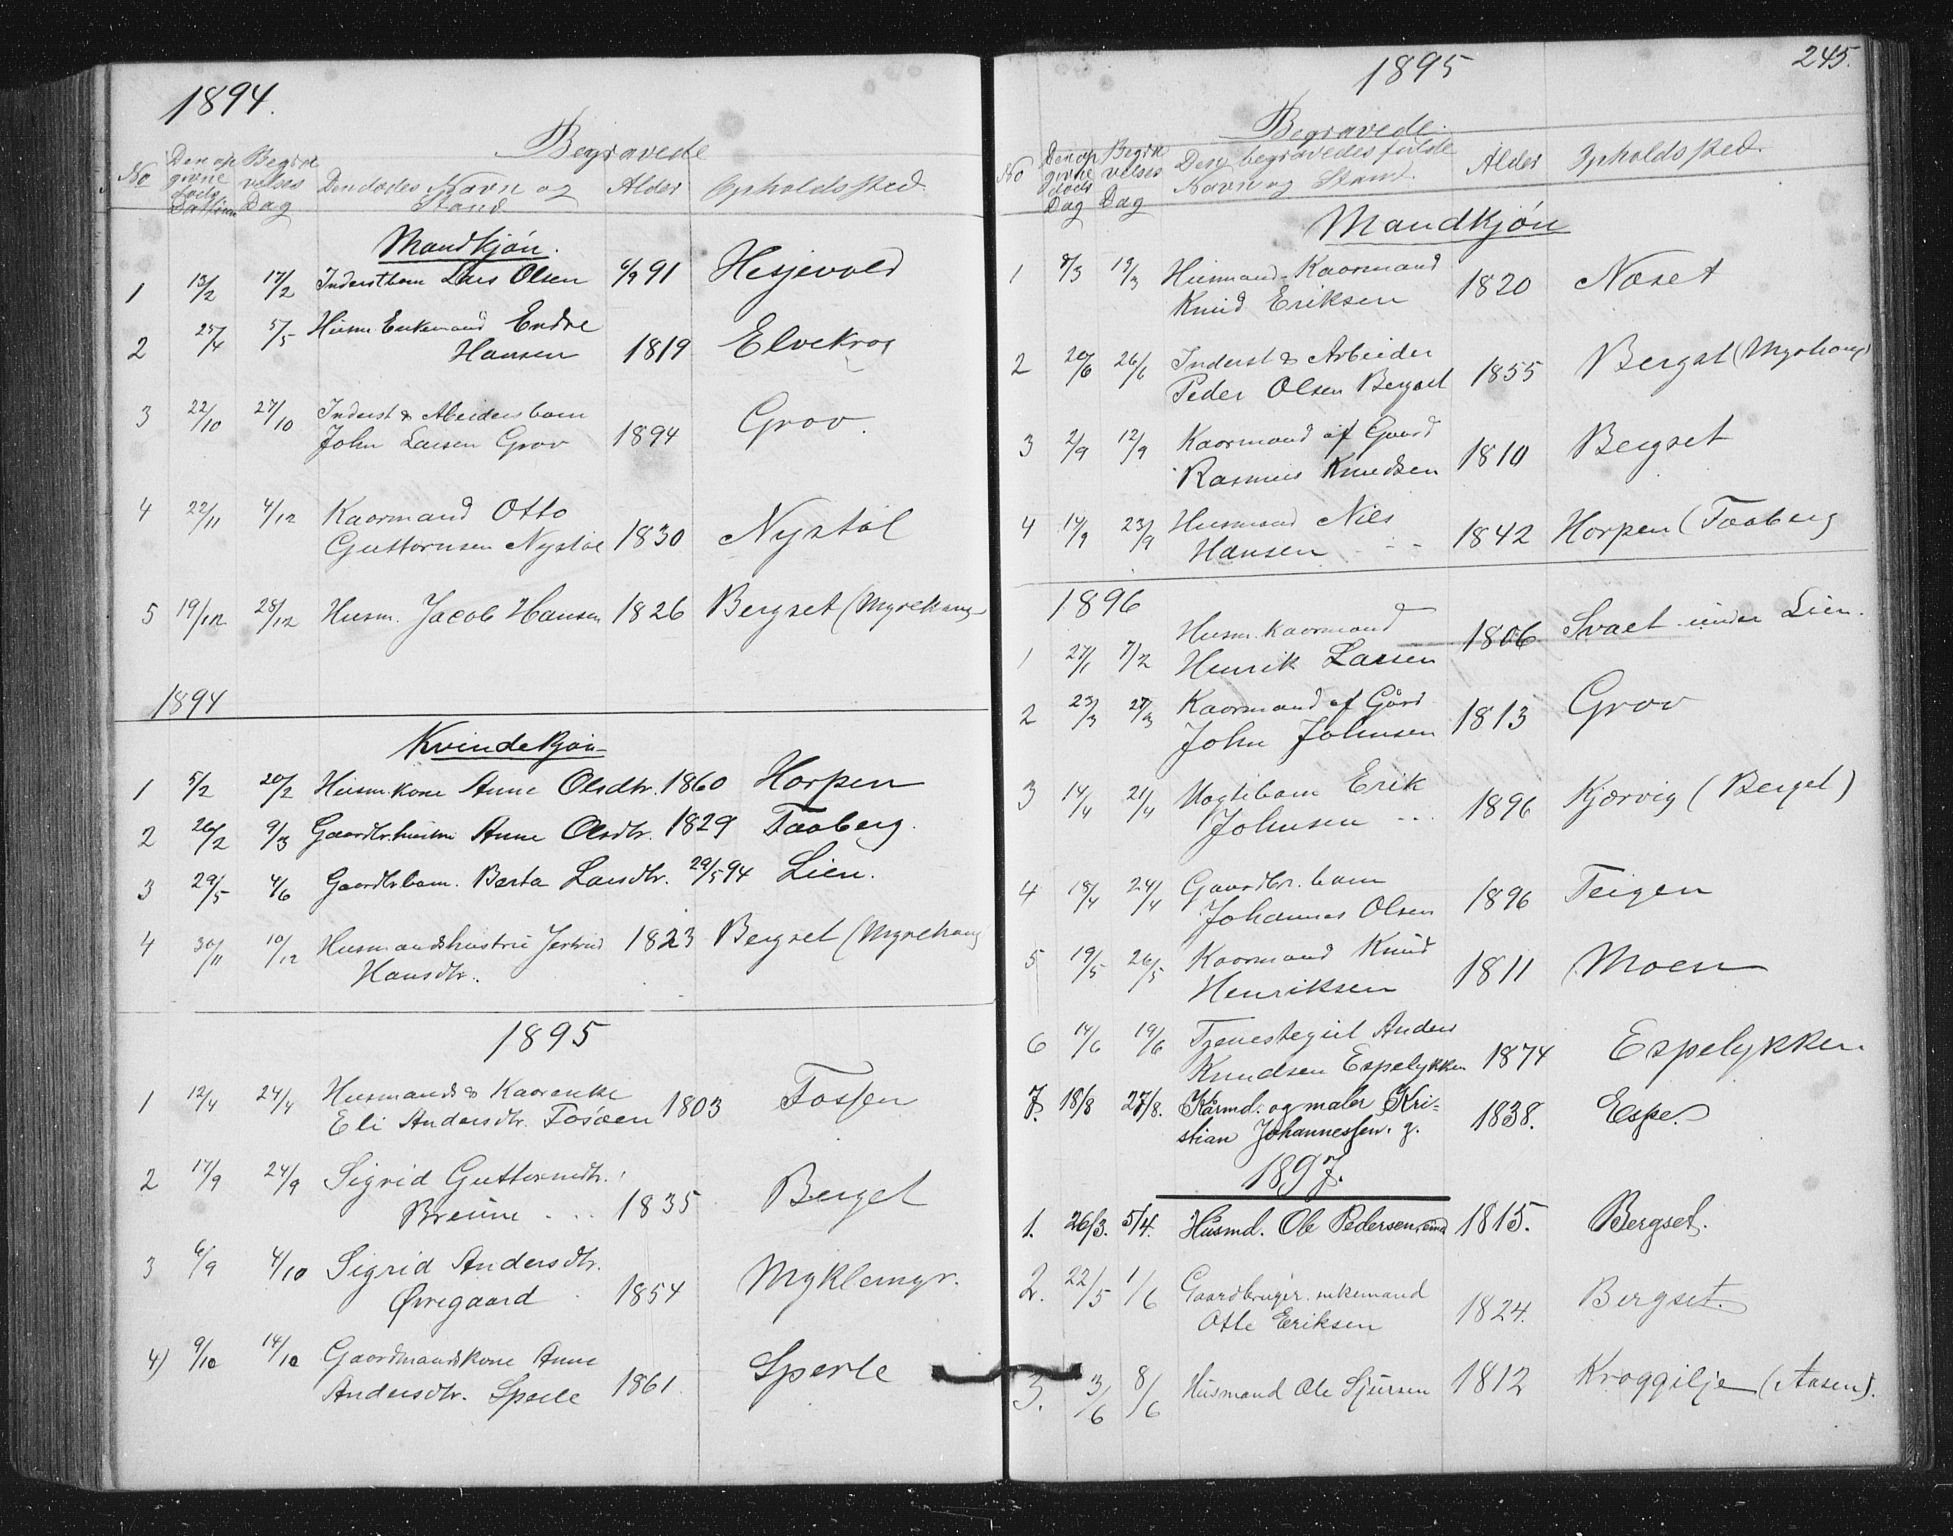 1894.
Begravede
No
Den opgivne Døds Datum
Begravelses Dag
Den dødes Navn og Stand
Alder
Opholdssted.
Mandkjøn.
1 13/2 17/2 Inderstbarn Lars Olsen 6/9 91 Hesjevold
2 25/4 5/5 Husm Enkemand Endre
Hansen 1819 Elvekrog
3 22/10 27/10 Inderst & Arbeiders barn
John Larsen Grov 1894 Grov.
4 22/11 4/12 Kaarmand Otto
Guttormsen Nystøl 1830 Nystøl
5 19/12 28/12 Husm. Jacob Hansen 1826 Bergset (Myrehaug
1894
Kvindekjøn
1 5/2 20/2 Husm.kone Anne Olsdtr. 1860 Horpen
2 26/2 9/3 Gaardbr. Anne Olsdtr. 1829 Faaberg.
3 29/5 4/6 Gaardbr barn. Barta Larsdtr. 29/5 94 Lien.
4 30/11 10/12 Husmandshustru Jertrud 1823 Bergset (Myrehaug
Hansdtr.
1895
1 12/4 24/4 Husmands & Kaarenke
Eli Andersdtr. Fosøen 1803 Fossen
2 17/9 24/9 Sigrid Guttormdtr.
Breime ... 1835 Berget
3 6/9 4/10 Sigrid Andersdtr.
Øvregaard 1854 Myklemyr.
4) 9/10 14/10 Gaardmandskone Anne
Andersdtr. Sperle 1861. Sperle
1895
245.
Begravede.
No
Den opgivne døds Dag
Begravelses Dag
Den begravedes fulde
Navn og Stand.
Alder
Opholdssted.
Mandkjøn
1 8/3 19/3 Husmand-Kaarmand
Knud Eriksen 1820 Næset
2 20/6 26/6 Inderst & Arbeider
Peder Olsen Bergset 1855 Bergst (Myrehaug)
3 2/9 12/9 Kaarmand af Gaard
Rasmus Knudsen 1810 Bergset
4 14/9 23/9 Husmand Nils
Hansen 1842 Horpen (Faaberg
1896
Husm. Kaarmand
1 27/1 7/2 Henrik Larsen 1806 Svaet under Lien.
2 23/3 27/3 Kaarmand af Gård
John Johnsen 1813 Grov
3 14/4 21/4 Uægtebarn Erik
Johnsen ... 1896 Kjørvig (Berget)
4 18/4 24/4 Gaardbr. barn
Johannes Olsen 1896 Teigen
5 19/5 26/5 Kaarmand Knud
Henriksen 1811 Moen
6 14/6 19/6 Tjenestegut Anders
Knudsen Espelykken 1874 Espelykken
7. 18/8 27/8. Kårmd. og maler Kri-
stian Johannessen. g. 1838. Espe.
1897.
1. 26/3. 5/4. Husmd. Ole Pedersen, 1815. Bergset.
2. 22/5 1/6 Gaardbruger. enkemand
Otte Eriksen 1824. Bergset.
3. 3/6 8/6 Husmand Ole Sjursen 1812 Kroggilje (Aasen).